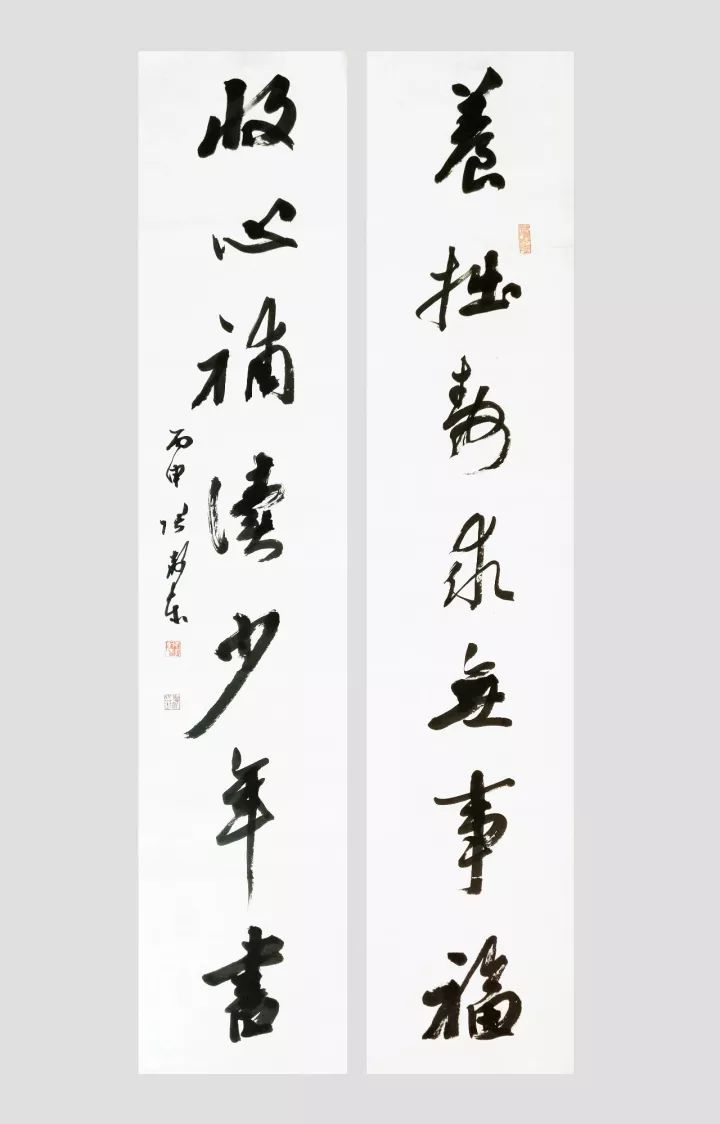 養拙求無事福
收心補讀少年書
丙申張東